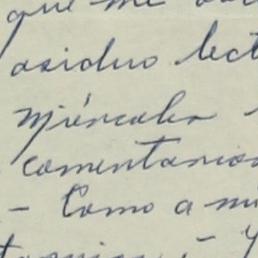 que me
asiduo lect
miércoles
comentarios
- Como a mi